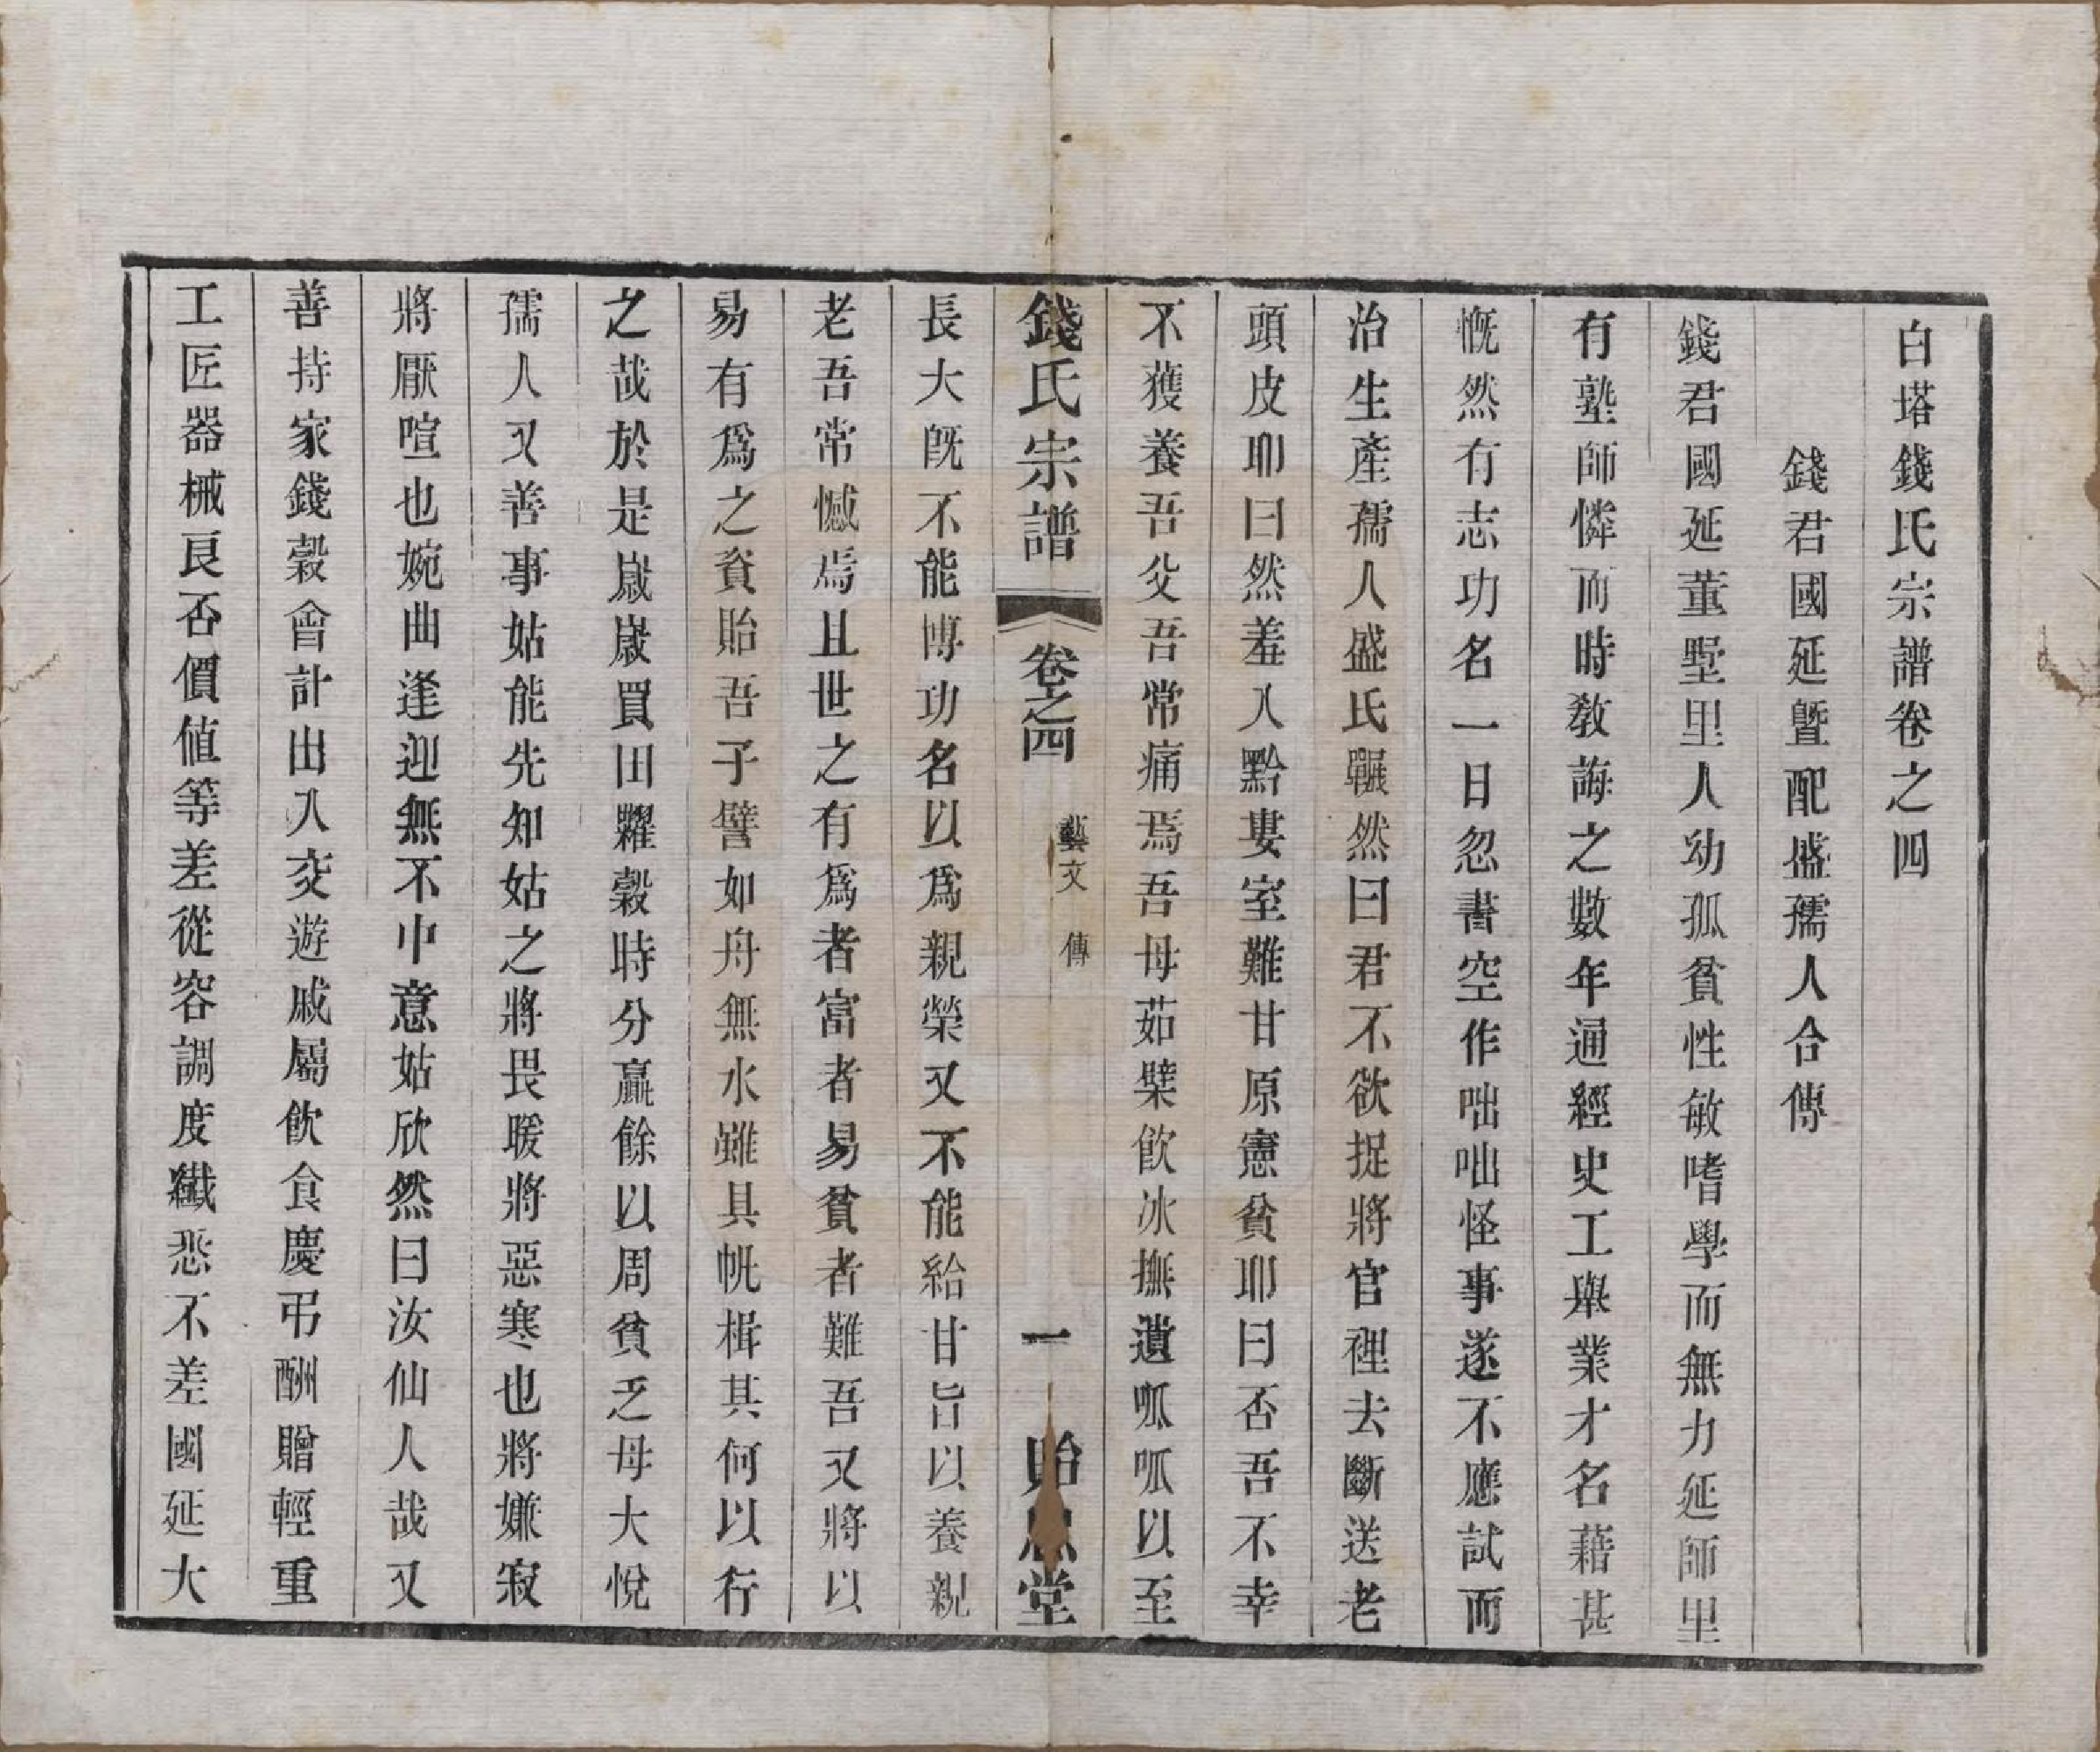 白塔錢氏宗譜卷之四
錢君國延曁配盛孺人合傳
錢君國延董墅里人幼孤貧性敏嗜學而無力延師里
有塾師憐而時敎誨之數年通經史工舉業才名藉甚
慨然有志功名一日忽書空作咄咄怪事遂不應試而
治生產孺人盛氏囅然曰君不欲捉將官裡去斷送老
頭皮耶曰然羞入黔婁室難甘原憲貧耶曰否吾不幸
不獲養吾父吾常痛焉吾母茹櫱飮冰撫遺呱呱以至
錢氏宗譜 卷之四 藝文 傳 一 貽 堂
長大旣不能博功名以爲親榮又不能給甘旨以養親
老吾常憾焉且世之有爲者富者易貧者難吾又將以
易有爲之資貽吾子譬如舟無水雖具帆楫其何以行
之哉於是歲歲買田糶穀時分贏餘以周貧乏母大悅
孺人又善事姑能先知姑之將畏暖將惡寒也將嫌寂
將厭喧也婉曲逢迎無不中意姑欣然曰汝仙人哉又
善持家錢穀會計出入交遊戚屬飮食慶弔酬贈輕重
工匠器械良否價値等差從容調度纖悉不差國延大